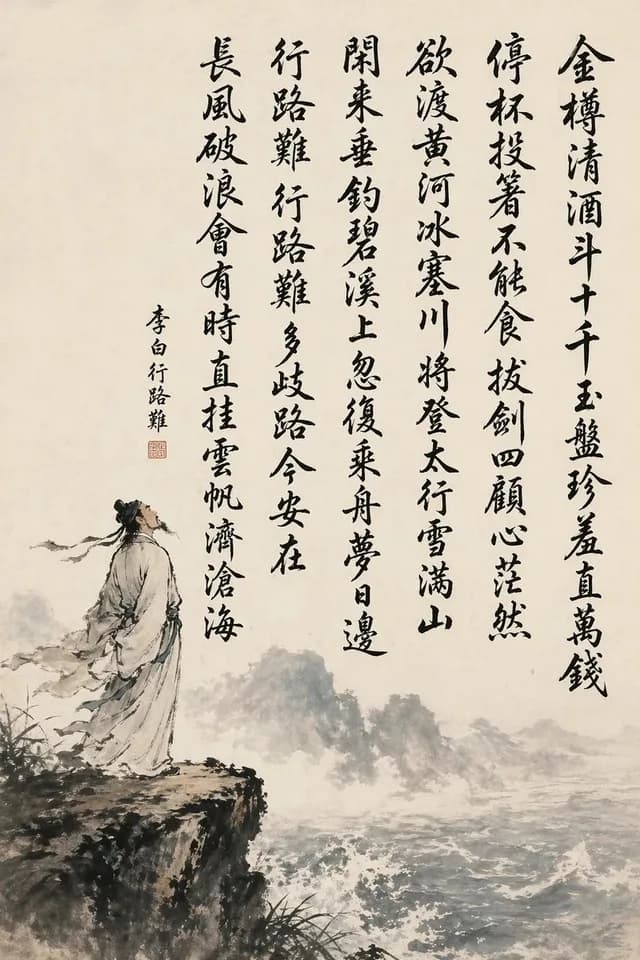 金樽清酒斗十千玉盤珍羞直萬錢
停杯投箸不能食拔劍四顧心茫然
欲渡黄河冰塞川將登太行雪满山
閑来垂釣碧溪上忽復乘舟夢日邊
行路難行路難多歧路今安在
長風破浪會有時直挂雲帆濟滄海
李白行路難